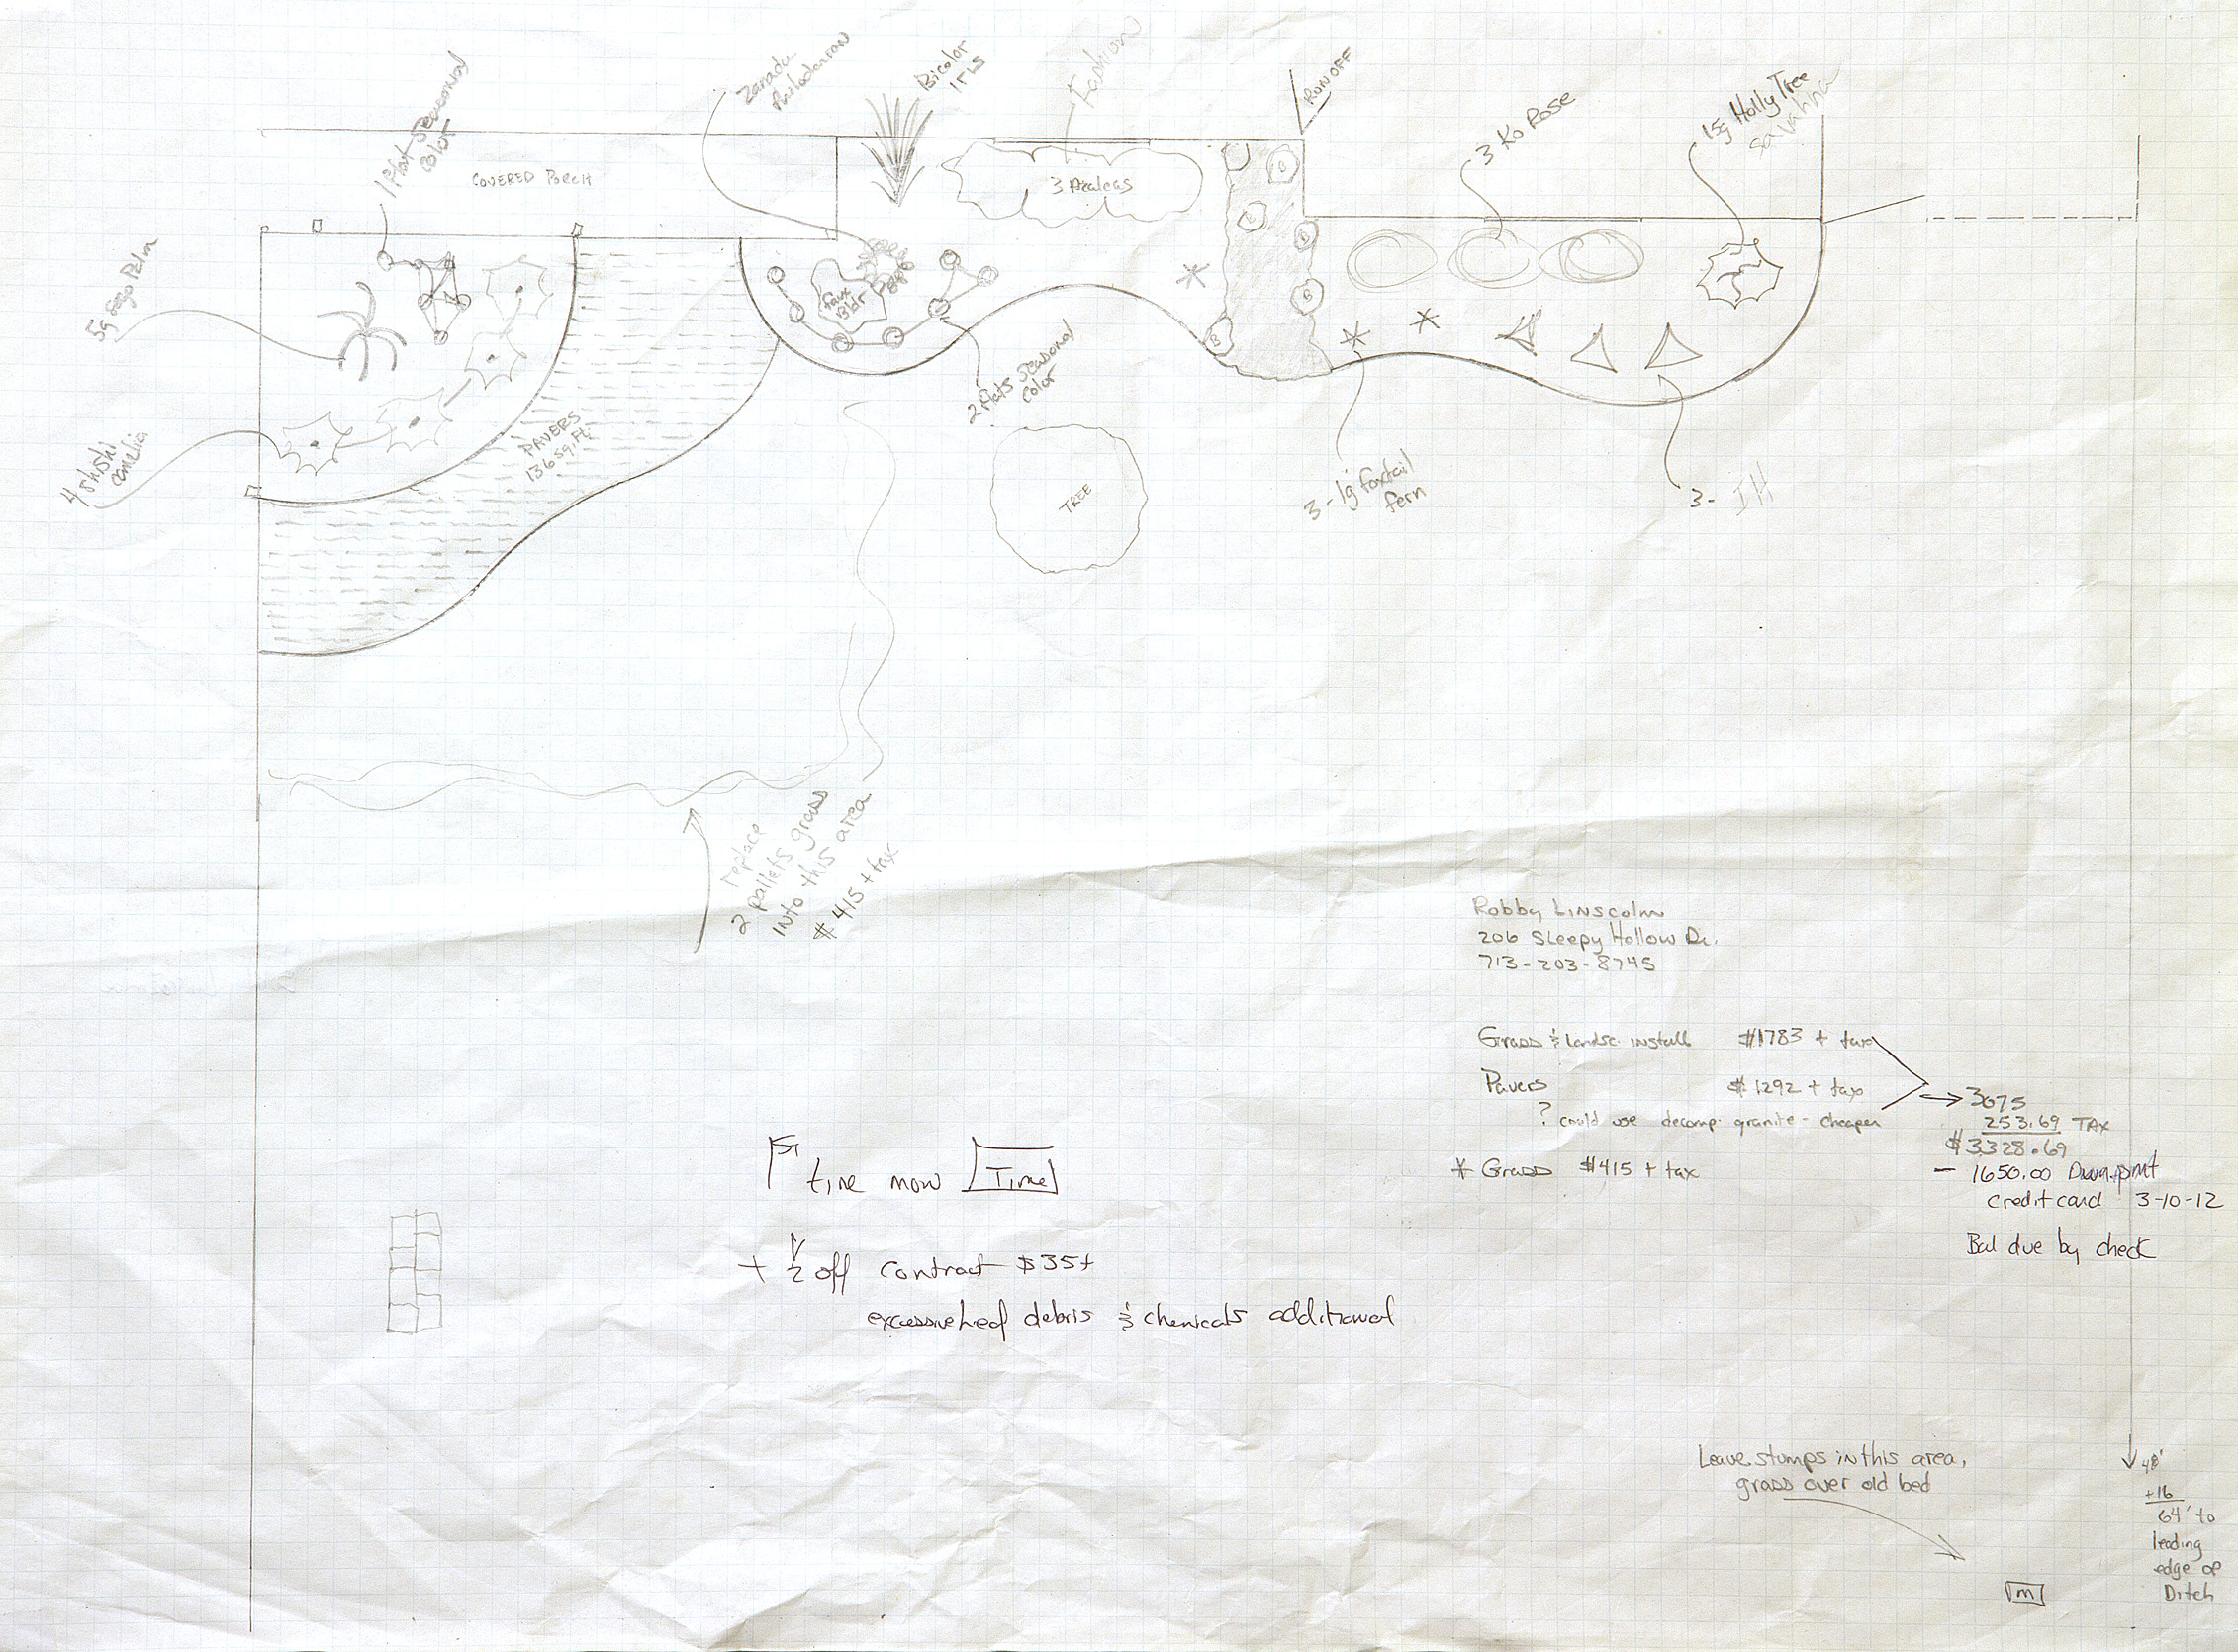 1 flat seasonal
color
COVERED PORCH
Bicolor
Iris
Fashion
3 Azaleas
RUN OFF
3 KO Rose
15g Holly Tree
Savahna
5g Sago Palm
4 shishi
camelia
Faux
Bldr
B
B
B
B
B
PAVERS
136 sq. Ft.
2 flats seasonal
color
TREE
3-1g foxtail
fern
3- IH
replace
2 pallets grass
into this area
$ 415 + tax
Robby Linscolm
206 Sleepy Hollow Dr.
713-203-8745
Grass & Landsc. install $1783 + tax
Pavers $1292 + tax
? could use decomp. granite - cheaper
* Grass $415 + tax
3075
253.69 TAX
$3328.69
- 1650.00 Down pmt
credit card 3-10-12
Bal due by check
mow Time
+ 1/2 off contract $35+
excessive leaf debris & chemicals additional
Leave stumps in this area,
grass over old bed
48'
+16
64' to
leading
edge of
Ditch
m